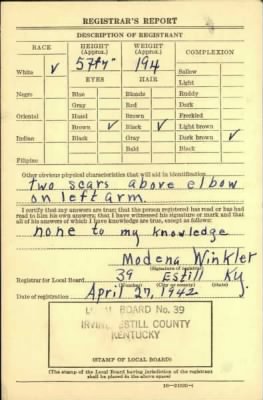 REGISTRAR'S REPORT
DESCRIPTION OF REGISTRANT
RACE
HEIGHT
(Approx.)
WEIGHT
(Approx.)
COMPLEXION
White ✓
194
Sallow
Light
EYES
HAIR
Negro
Blue
Blonde
Ruddy
Gray
Red
Dark
Oriental
Hazel
Brown
Freckled
Brown ✓
Black ✓
Light brown
Indian
Black
Gray
Dark brown ✓
Bald
Black
Filipino
Other obvious physical characteristics that will aid in identification
two scars above elbow
on left arm.
I certify that my answers are true; that the person registered has read or has had
read to him his own answers; that I have witnessed his signature or mark and that
all of his answers of which I have knowledge are true, except as follows:
none to my knowledge
Modena Winkler
(Signature of registrar)
Registrar for Local Board 39 Estill Ky.
(Number) (City or county) (State)
Date of registration April 27, 1942
LOCAL BOARD No. 39
IRVINE, ESTILL COUNTY
KENTUCKY
(STAMP OF LOCAL BOARD)
(The stamp of the Local Board having jurisdiction of the registrant
shall be placed in the above space)